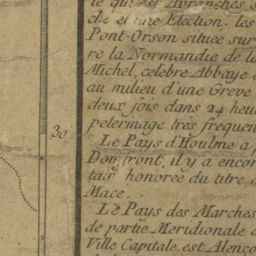 te qui est Avranches
che et une Election. les
Pont-Orson située sur
re la Normandie de l
Michel, celebre Abbaye
au milieu d'une Greve
deux fois dans 24 heu
pelerinage très frequen
30
Le Pays d'Houlme a p
Domfront, il y a encor
tais honorée du titre d
Mace.
Le Pays des Marches
de partie Meridionale d
Ville Capitale est Alenço